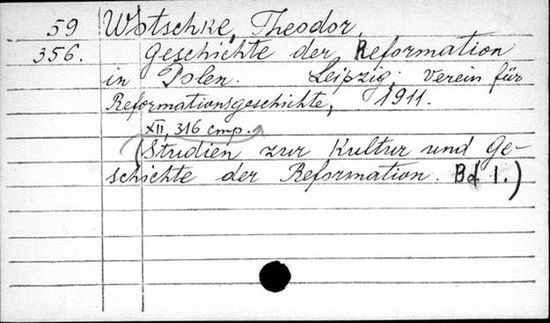 59 Wotschke, Theodor.
356. Geschichte der Reformation
in Polen. Leipzig, Verein für
Reformationsgeschichte, 1911.
XII, 316 стр.
(Studien zur Kultur und Ge-
schichte der Reformation. Bd 1.)